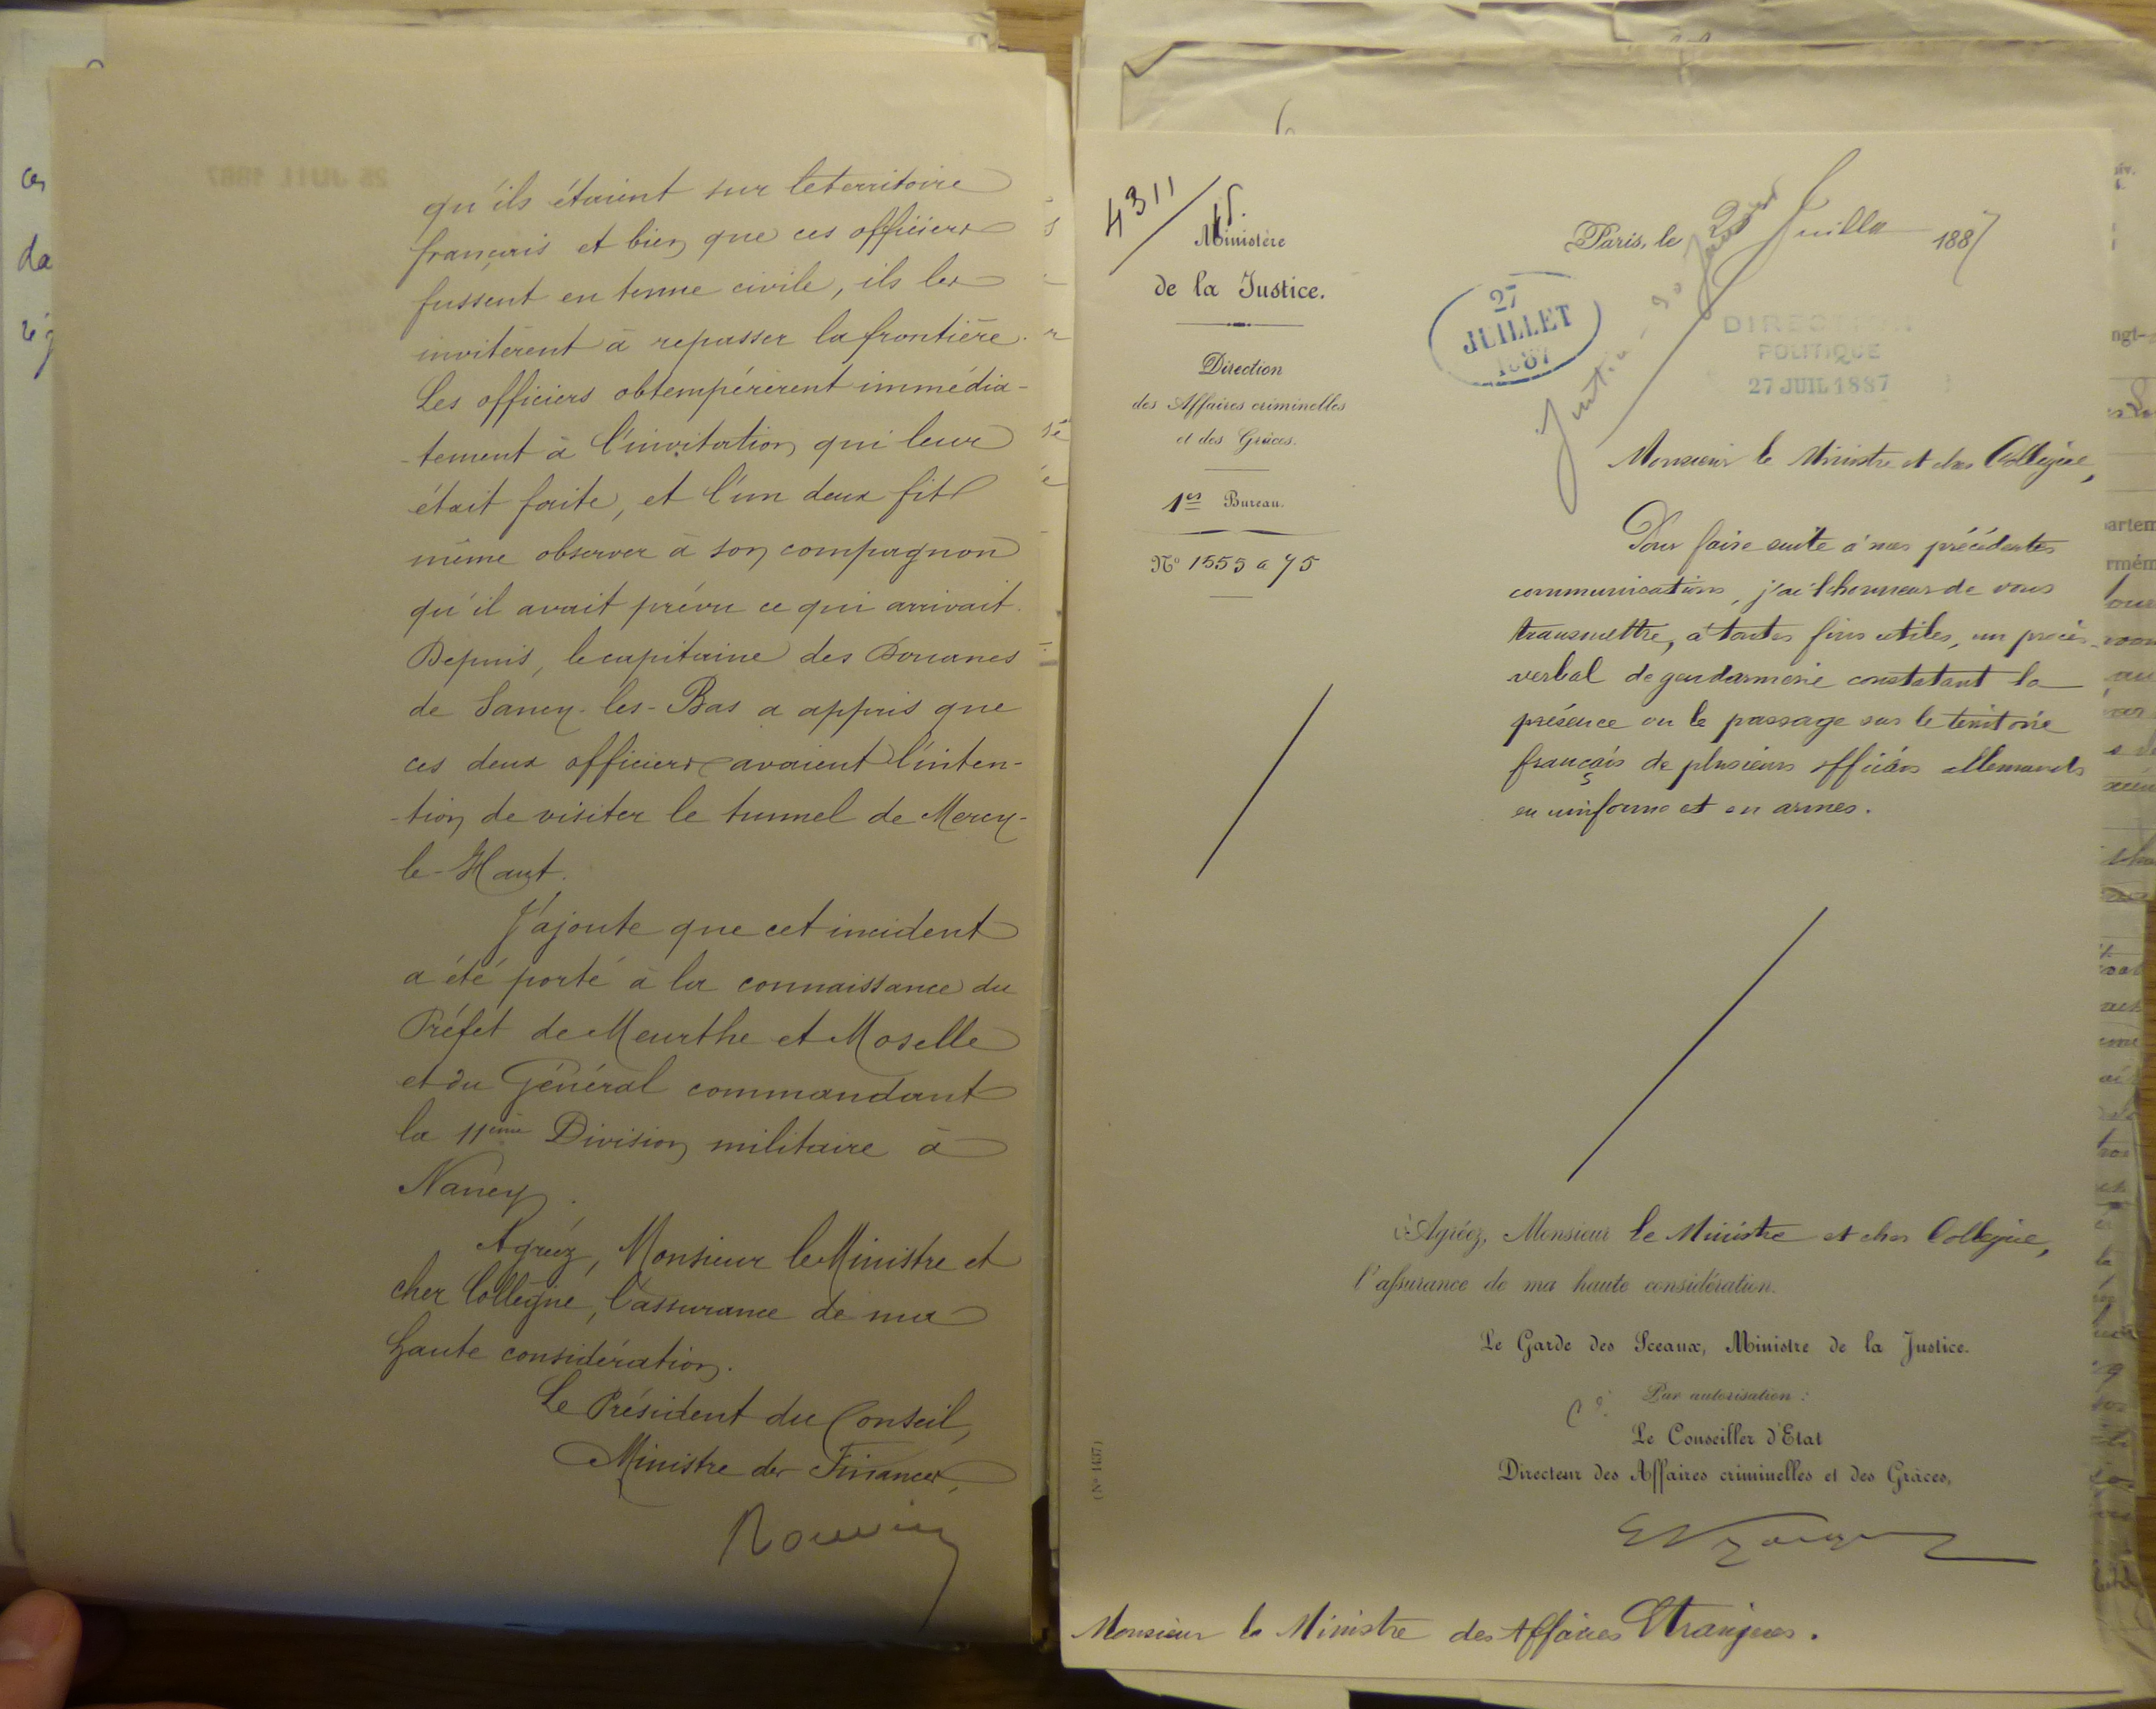 qu'ils étaient sur le territoire
français et bien que ces officiers
fussent en tenue civile, ils les
invitèrent à repasser la frontière.
Les officiers obtempérèrent immédia-
-tement à l'invitation qui leur
était faite, et l'un deux fit
même observer à son compagnon
qu'il avait prévu ce qui arrivait.
Depuis, le capitaine des Douanes
de Sancy-les-Bas a appris que
ces deux officiers avaient l'inten-
-tion de visiter le tunnel de Mercy-
le-Haut.
J'ajoute que cet incident
a été porté à la connaissance du
Préfet de Meurthe et Moselle
et du Général commandant
la 11ème Division militaire à
Nancy.
Agréez, Monsieur le Ministre et
cher Collègue, l'assurance de ma
haute considération.
Le Président du Conseil,
Ministre des Finances,
Rouvier
4311
Ministère
de la Justice.
Direction
des Affaires criminelles
et des Grâces.
1er Bureau.
N° 1553 a 75
Paris, le Juillet 1887
27
JUILLET
1887
DIRECTION
POLITIQUE
27 JUIL 1887
Monsieur le Ministre et cher Collègue,
Pour faire suite à mes précédentes
communications, j'ai l'honneur de vous
transmettre, à toutes fins utiles, un procès-
verbal de gendarmerie constatant la
présence ou le passage sur le territoire
français de plusieurs officiers allemands
en uniforme et en armes.
Agréez, Monsieur le Ministre et cher Collègue,
l'assurance de ma haute considération.
Le Garde des Sceaux, Ministre de la Justice.
Par autorisation :
Le Conseiller d'Etat
Directeur des Affaires criminelles et des Grâces,
(N° 1437)
Monsieur le Ministre des Affaires Etrangères.